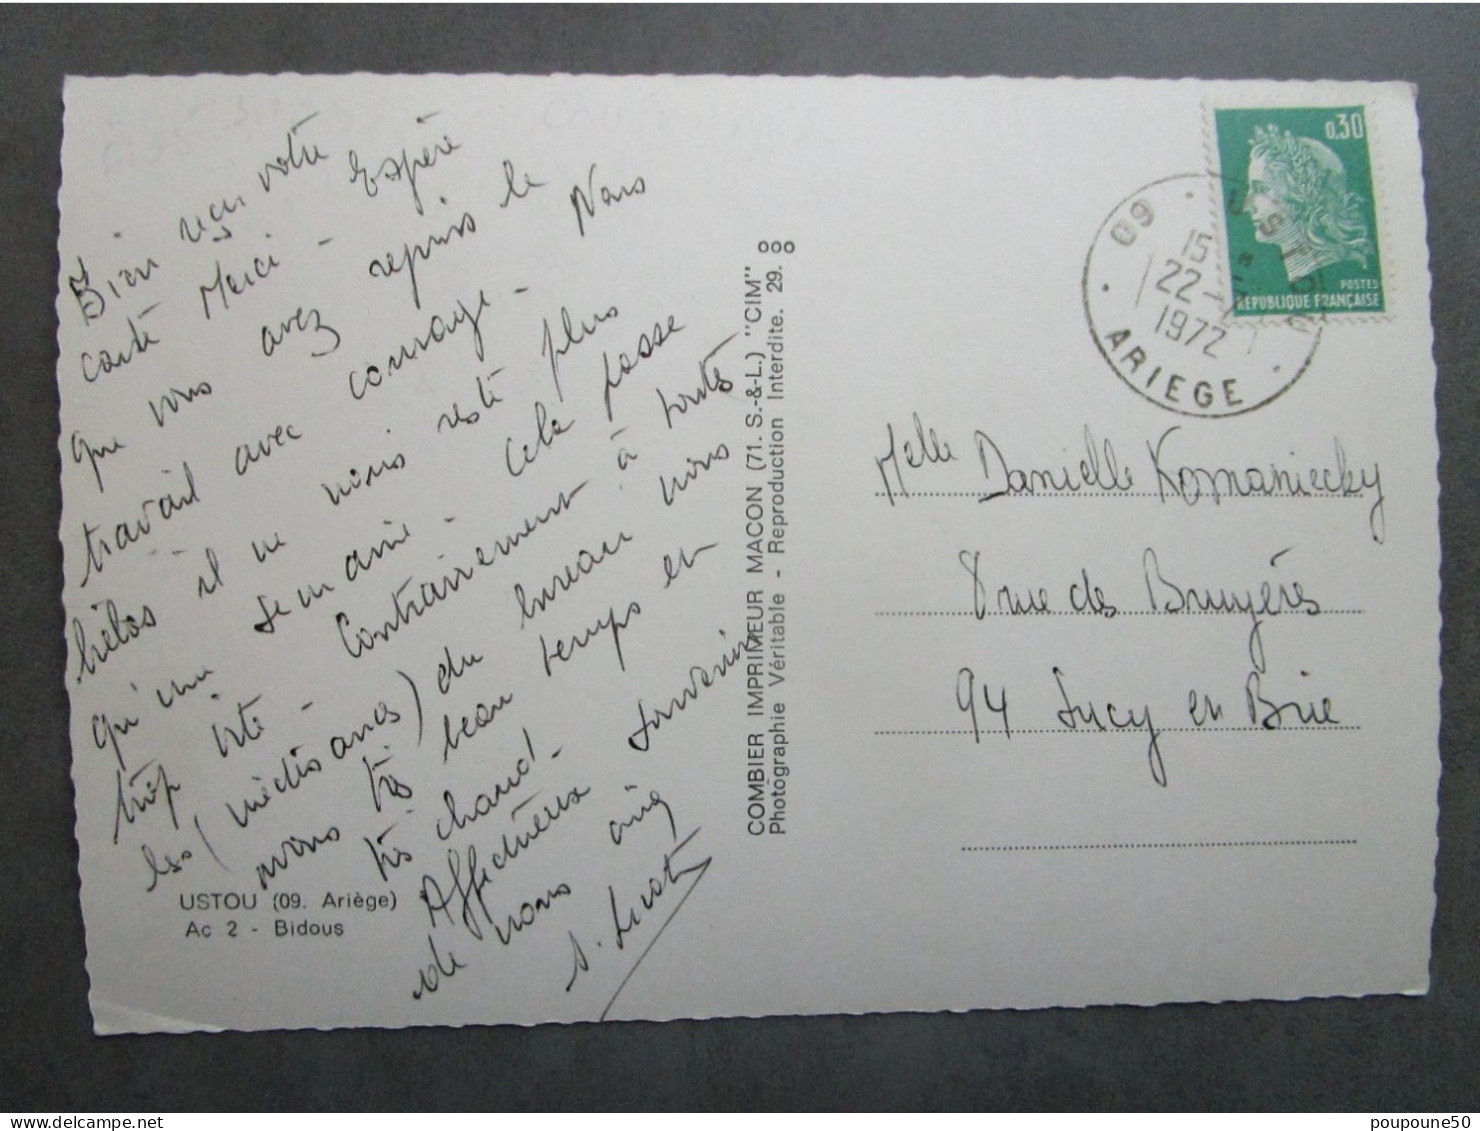 Bien reçu votre
carte Merci - Espère
que vous avez repris le
travail avec courage - Nous
hélas il ne nous reste plus
qu'une semaine - Cela passe
trop vite - Contrairement à toutes
les (médisances) du bureau nous
avons très beau temps et
très chaud -
Affectueux souvenir
de nous cinq
USTOU (09. Ariège)
Ac 2 - Bidous
COMBIER IMPRIMEUR MACON (71. S.-&-L.) "CIM"
Photographie Véritable - Reproduction Interdite. 29.
0,30
POSTES
REPUBLIQUE FRANÇAISE
09 USTOU
15
22
1972
ARIEGE
Melle Danielle Kosmaniecky
8 rue des Bruyères
94 Sucy en Brie
poupoune50